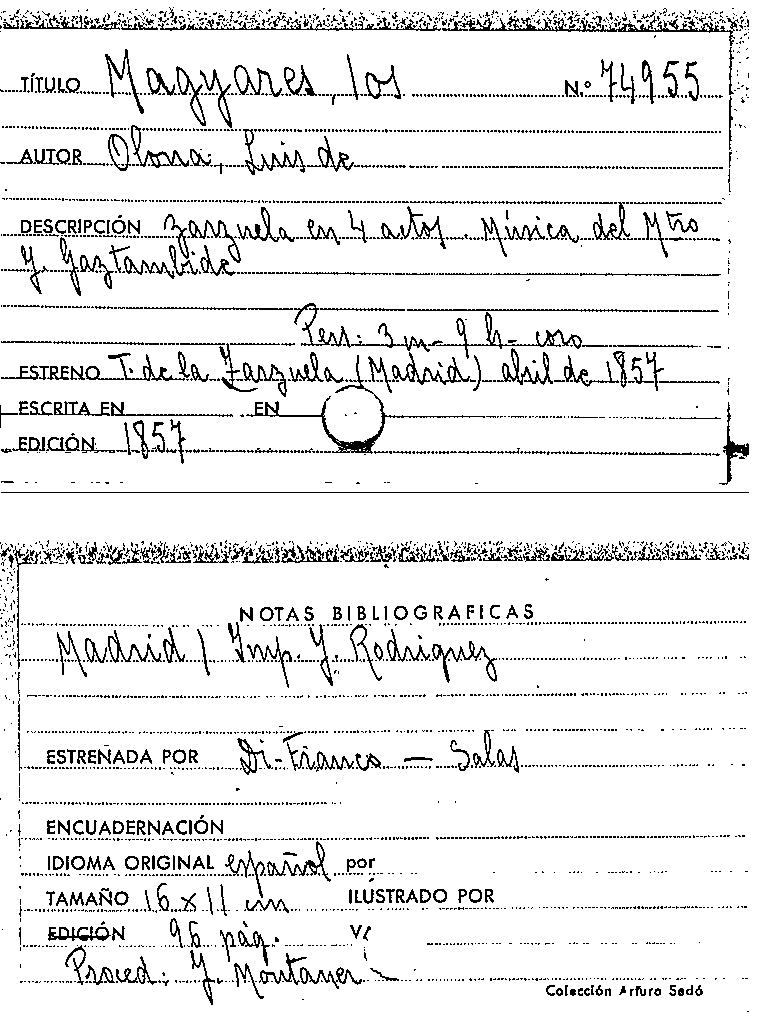 TÍTULO Magyares, los N.º 74955
AUTOR Olona, Luis de
DESCRIPCIÓN zarzuela en 4 actos. Música del Mtro
J. Gaztambide
Pers: 3 m- 9 h- coro
ESTRENO T. de la Zarzuela (Madrid) abril de 1857
ESCRITA EN EN
EDICIÓN 1857
NOTAS BIBLIOGRAFICAS
Madrid / Imp. J. Rodriguez
ESTRENADA POR Di-Franco — Salas
ENCUADERNACIÓN
IDIOMA ORIGINAL español por
TAMAÑO 16 x 11 cm ILUSTRADO POR
EDICIÓN 96 pág.
Proced: J. Montaner
Colección Arturo Sedó